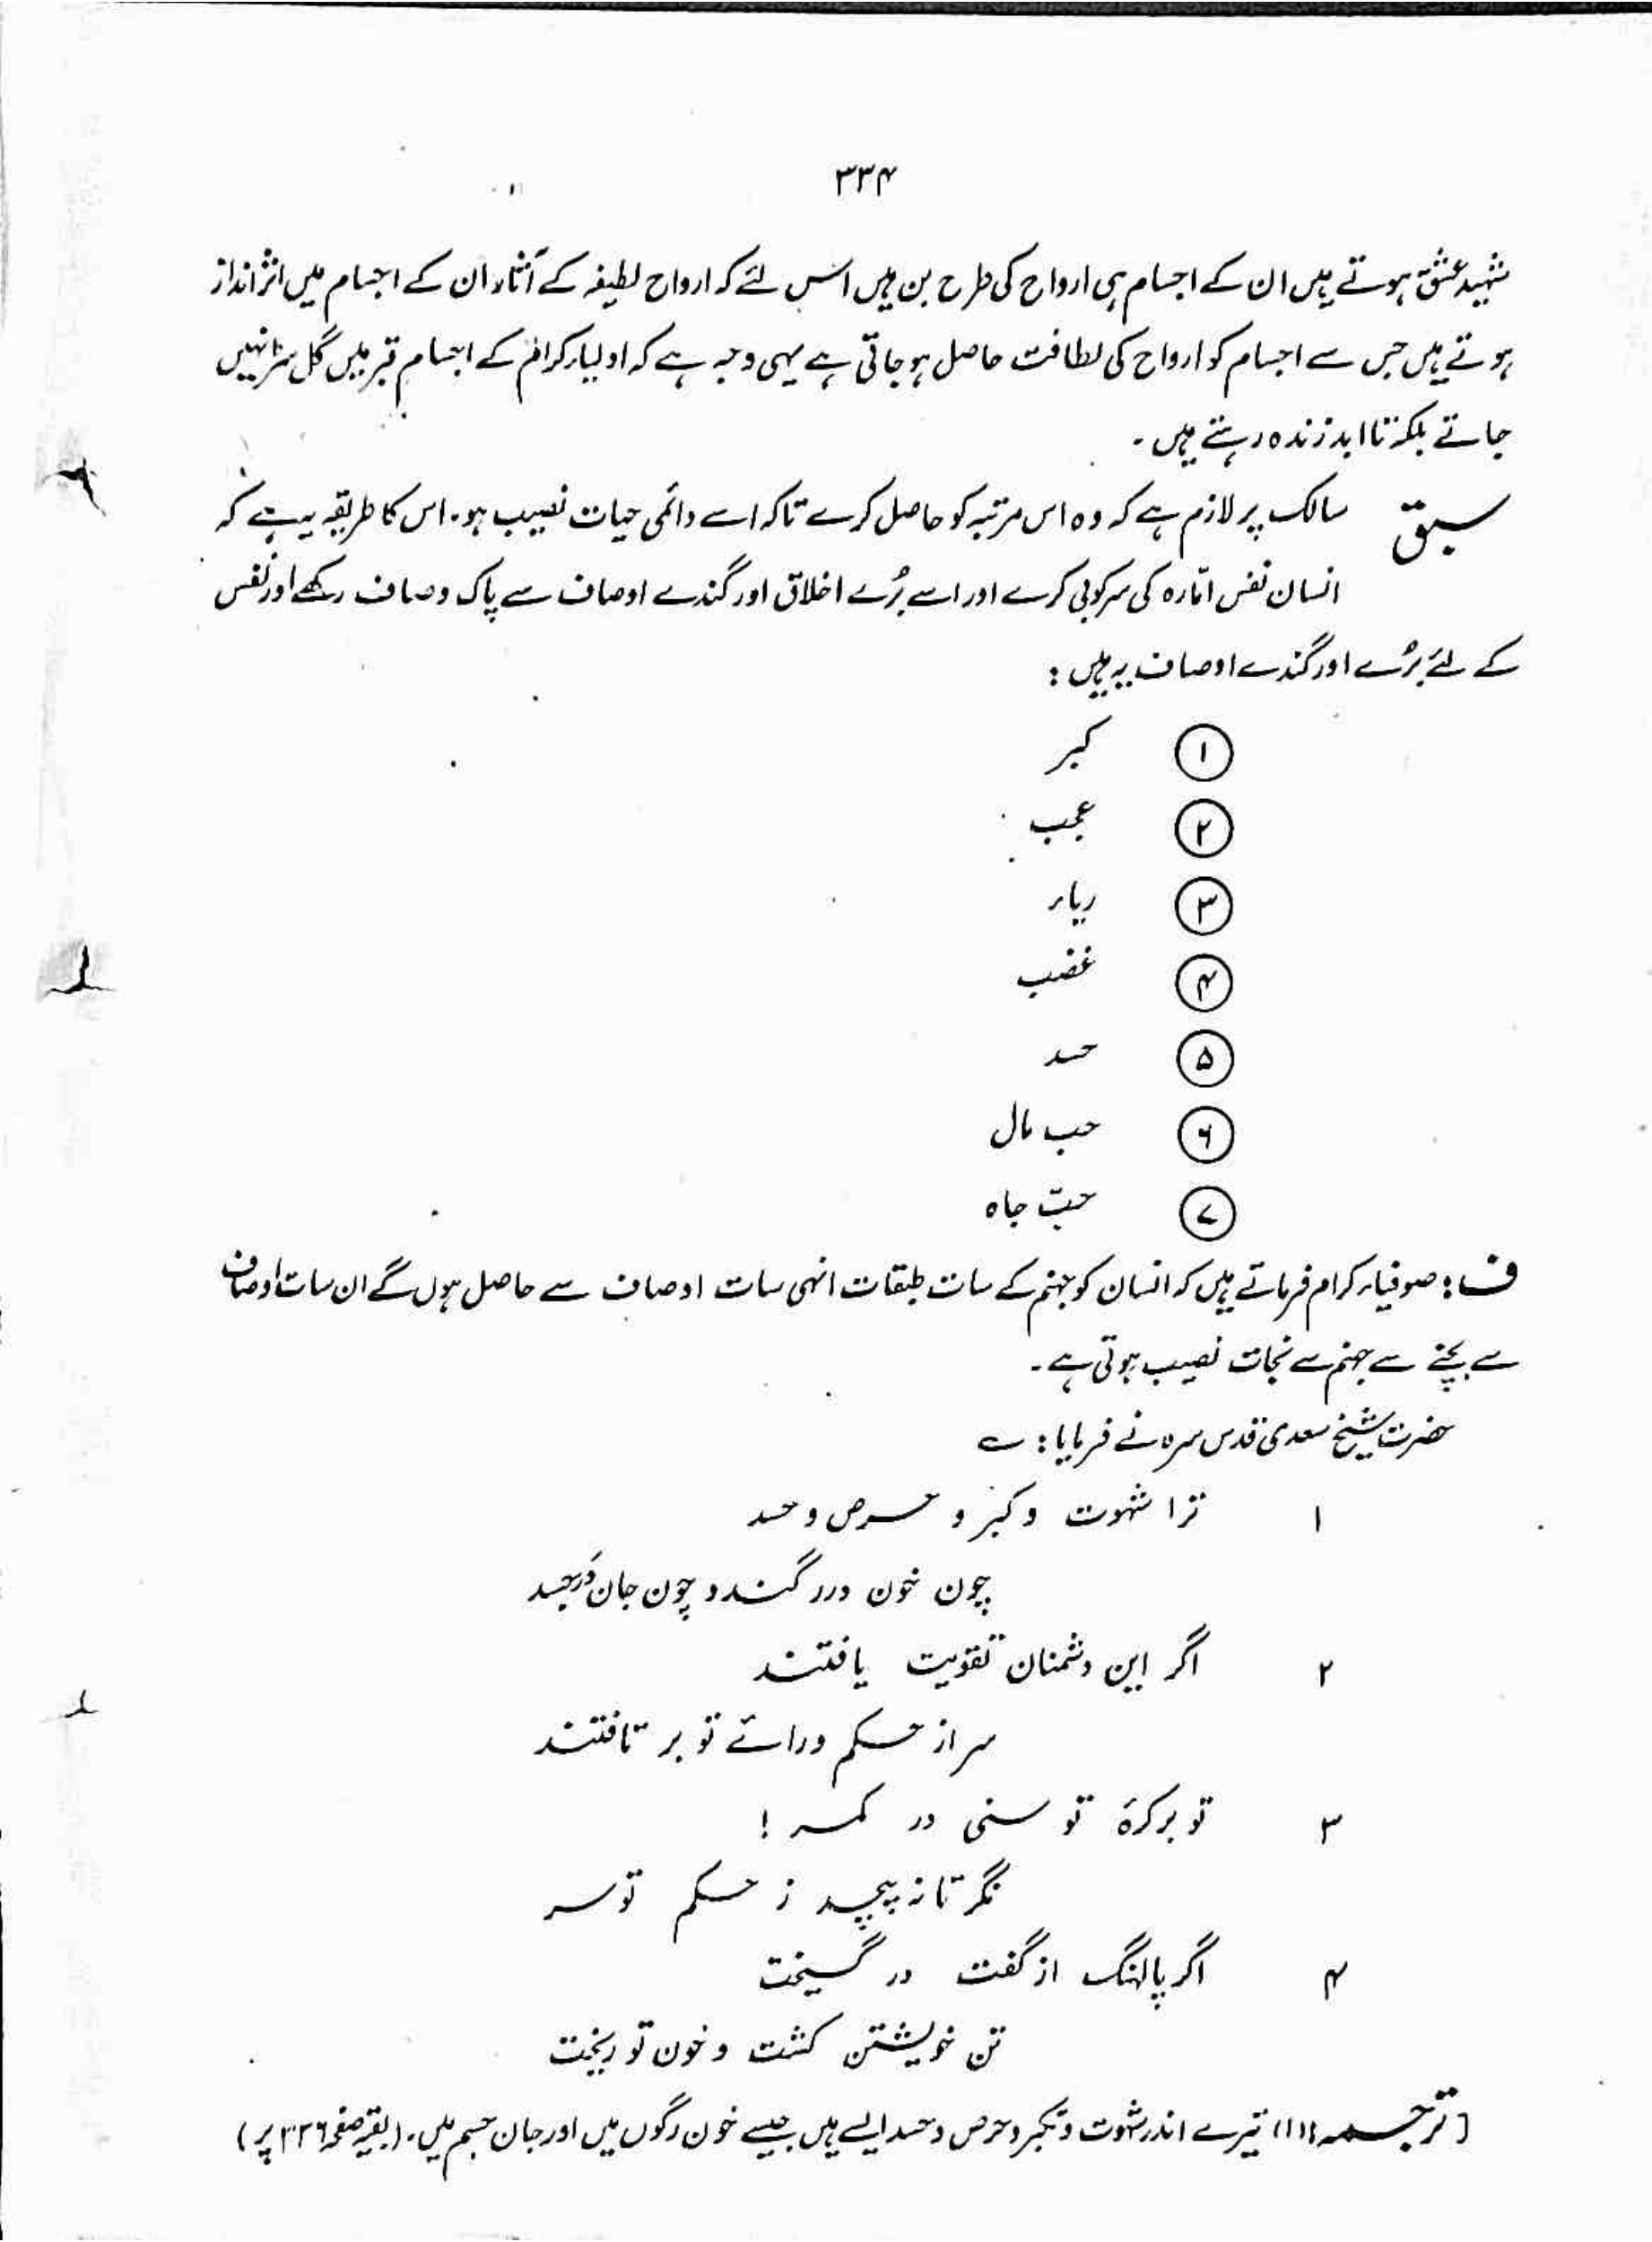 ۳۳۴
شہید عشق ہوتے ہیں ان کے اجسام ہی ارواح کی طرح بن ہیں اس لئے کہ ارواح لطیفہ کے آثار ان کے اجسام میں اثر انداز
ہوتے ہیں جس سے اجسام کو ارواح کی لطافت حاصل ہو جاتی ہے یہی وجہ ہے کہ اولیاء کرام کے اجسام قبر میں گل سڑ نہیں
جاتے بلکہ تا ابد زندہ رہتے ہیں۔
سبق سالک پر لازم ہے کہ وہ اس مرتبہ کو حاصل کرے تاکہ اسے دائمی حیات نصیب ہو۔ اس کا طریقہ یہ ہے کہ
انسان نفس امّارہ کی سرکوبی کرے اور اسے بُرے اخلاق اور گندے اوصاف سے پاک وصاف رکھے اور نفس
کے لئے بُرے اور گندے اوصاف یہ ہیں :
۱ کبر
۲ عجب
۳ ریاء
۴ غضب
۵ حسد
۶ حب مال
۷ حبّ جاہ
ف : صوفیاء کرام فرماتے ہیں کہ انسان کو جہنم کے سات طبقات انہی سات اوصاف سے حاصل ہوں گے ان سات اوصاف
سے بچنے سے جہنم سے نجات نصیب ہوتی ہے۔
حضرت شیخ سعدی قدس سرہ نے فرمایا : ؎
۱ ترا شہوت و کبر و حرص و حسد
چون خون در رگند و چون جان دَر جسد
۲ اگر این دشمنان تقویت یافتند
سر از حکم و رائے تو بر تافتند
۳ تو بر کرۂ توسنی در کمر !
نگر تا نہ پیچد ز حکم تو سر
۴ اگر پالہنگ از گفت در گسیخت
تن خویشتن کشت و خون تو ریخت
[ ترجمہ (۱) تیرے اندر شہوت و تکبر و حرص و حسد ایسے ہیں جیسے خون رگوں میں اور جان جسم میں۔ (بقیہ صفحہ ۳۳۶ پر)